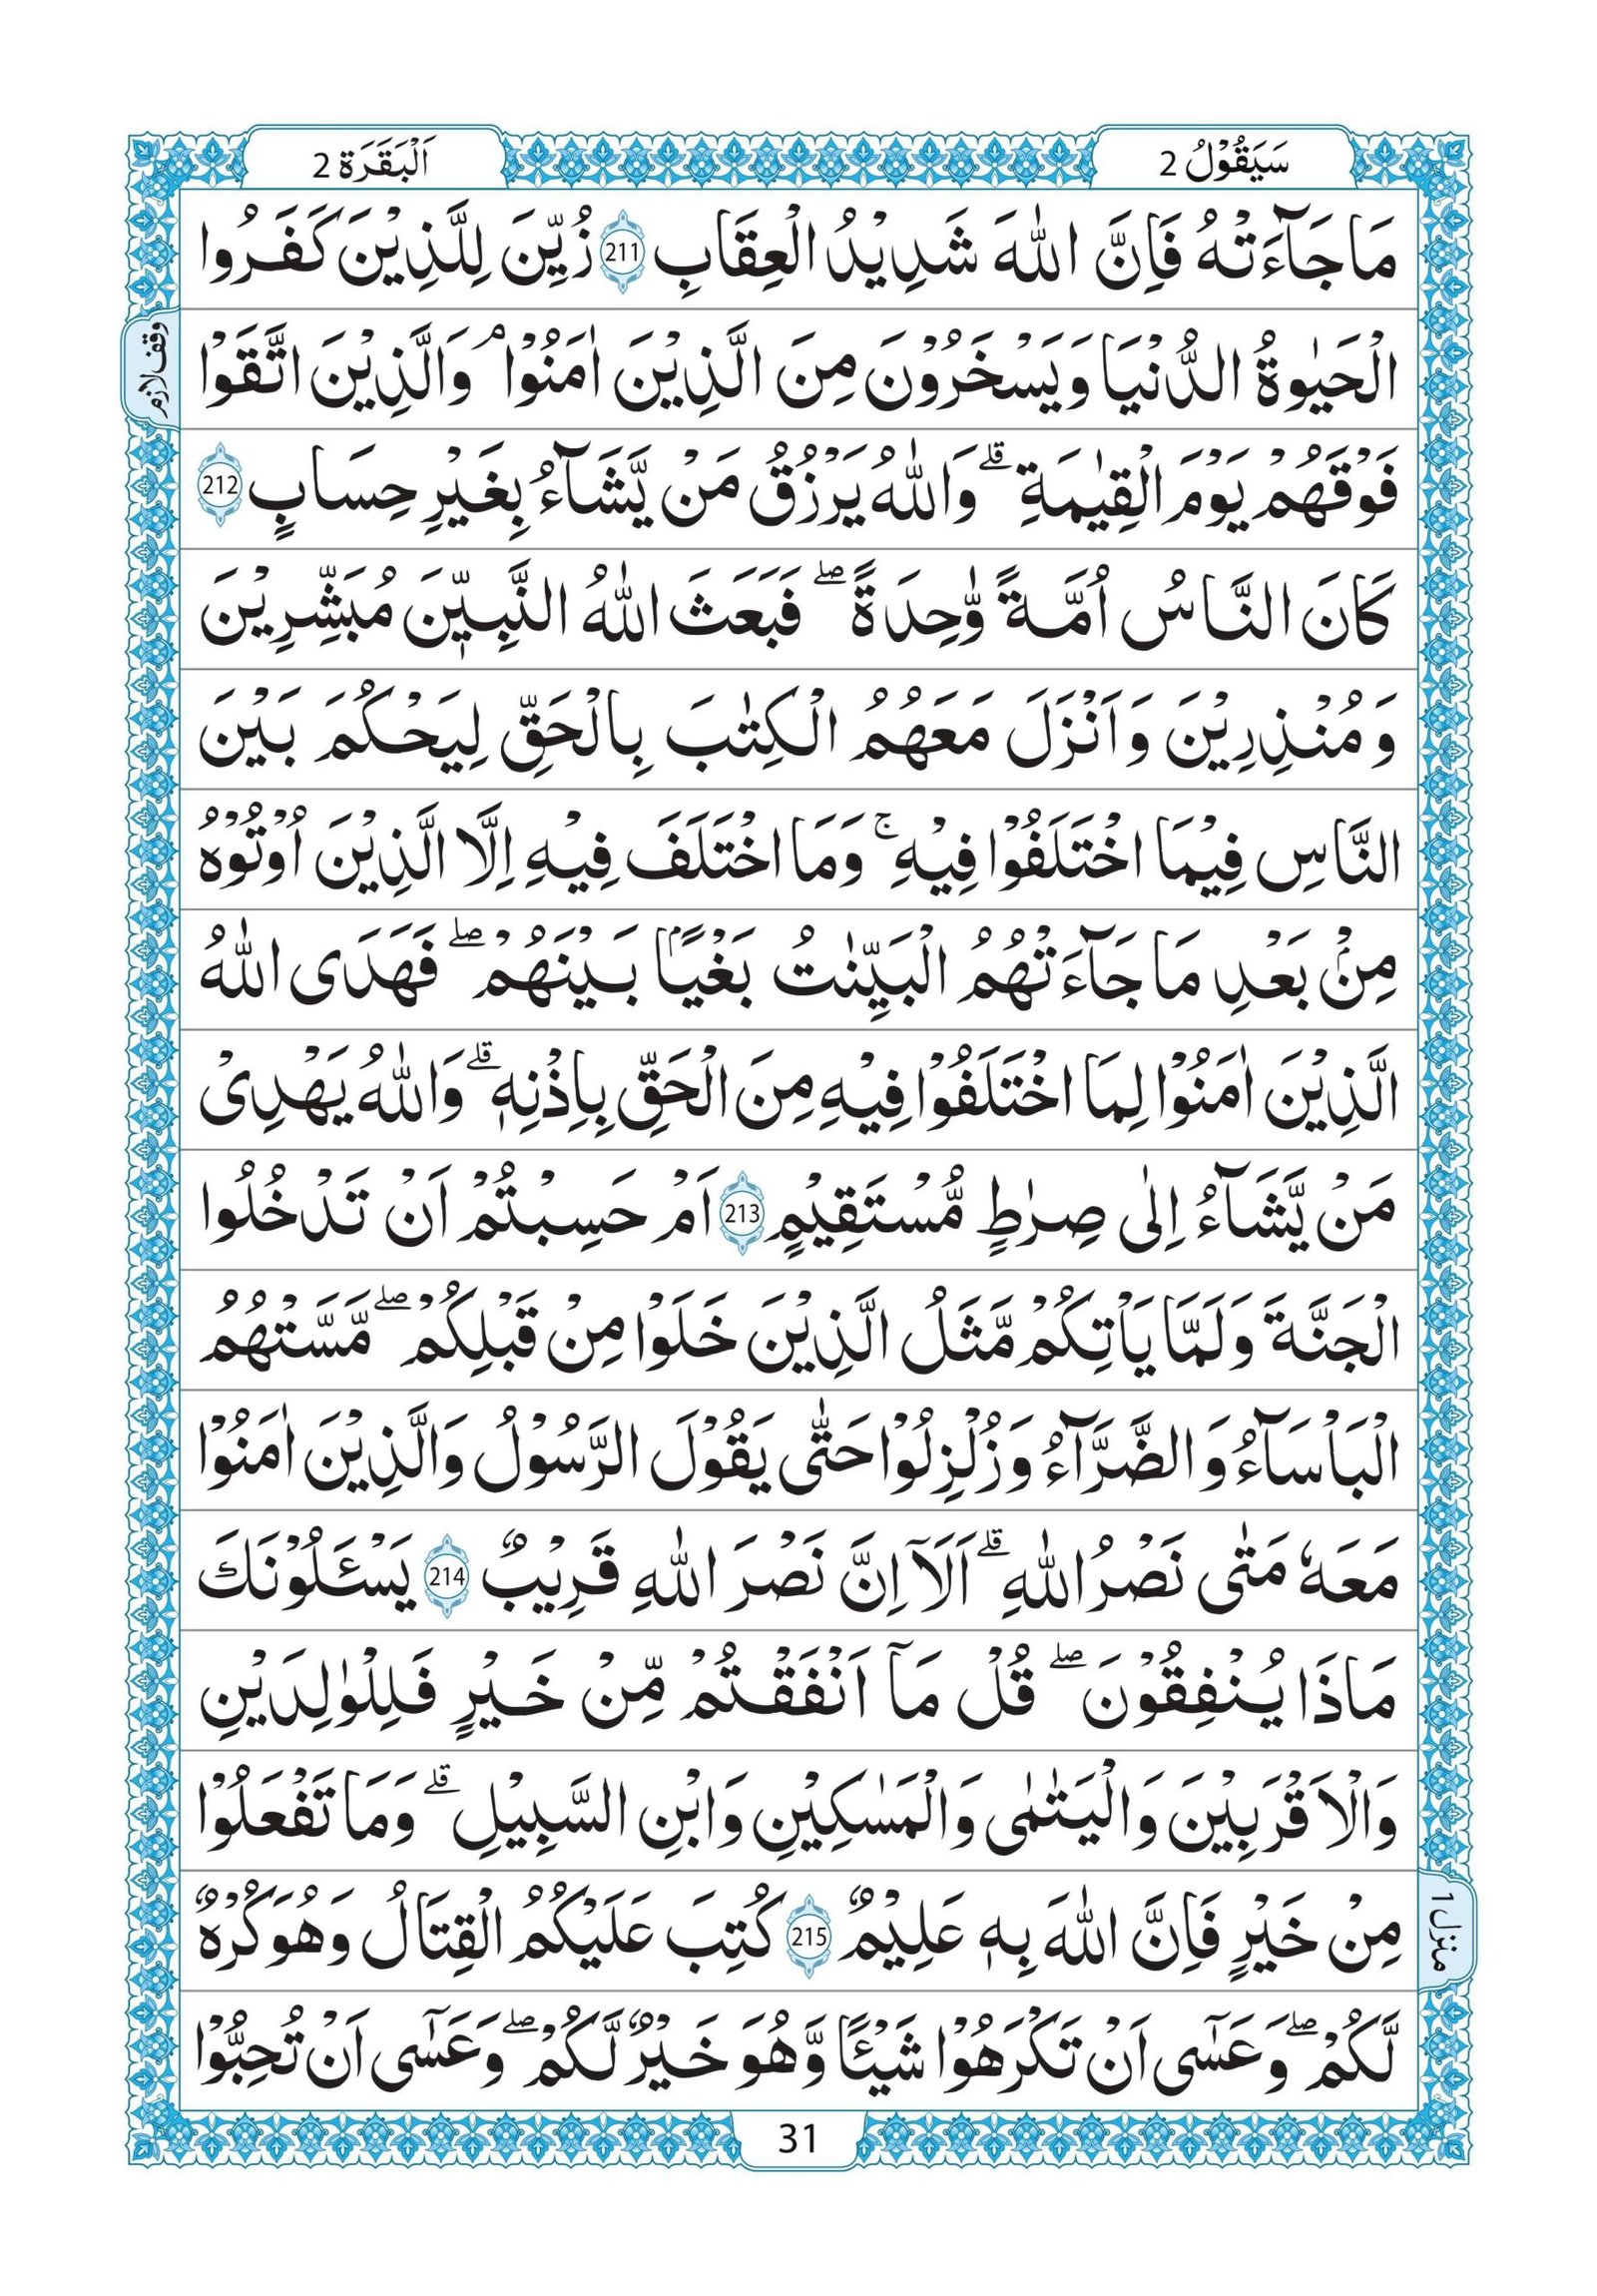 سَيَقُوْلُ 2
اَلْبَقَرَة 2
مَا جَآءَتْهُ فَاِنَّ اللّٰهَ شَدِيْدُ الْعِقَابِ 211 زُيِّنَ لِلَّذِيْنَ كَفَرُوا
الْحَيٰوةُ الدُّنْيَا وَيَسْخَرُوْنَ مِنَ الَّذِيْنَ اٰمَنُوْا ۘ وَالَّذِيْنَ اتَّقَوْا
وقف لازم
فَوْقَهُمْ يَوْمَ الْقِيٰمَةِ ۗ وَاللّٰهُ يَرْزُقُ مَنْ يَّشَآءُ بِغَيْرِ حِسَابٍ 212
كَانَ النَّاسُ اُمَّةً وَّٰحِدَةً ۖ فَبَعَثَ اللّٰهُ النَّبِيّٖنَ مُبَشِّرِيْنَ
وَمُنْذِرِيْنَ وَاَنْزَلَ مَعَهُمُ الْكِتٰبَ بِالْحَقِّ لِيَحْكُمَ بَيْنَ
النَّاسِ فِيْمَا اخْتَلَفُوْا فِيْهِ ۚ وَمَا اخْتَلَفَ فِيْهِ اِلَّا الَّذِيْنَ اُوْتُوْهُ
مِنْۢ بَعْدِ مَا جَآءَتْهُمُ الْبَيِّنٰتُ بَغْيًاۢ بَيْنَهُمْ ۖ فَهَدَى اللّٰهُ
الَّذِيْنَ اٰمَنُوْا لِمَا اخْتَلَفُوْا فِيْهِ مِنَ الْحَقِّ بِاِذْنِهٖ ۗ وَاللّٰهُ يَهْدِيْ
مَنْ يَّشَآءُ اِلٰى صِرٰطٍ مُّسْتَقِيْمٍ 213 اَمْ حَسِبْتُمْ اَنْ تَدْخُلُوا
الْجَنَّةَ وَلَمَّا يَاْتِكُمْ مَّثَلُ الَّذِيْنَ خَلَوْا مِنْ قَبْلِكُمْ ۖ مَّسَّتْهُمُ
الْبَاْسَآءُ وَالضَّرَّآءُ وَزُلْزِلُوْا حَتّٰى يَقُوْلَ الرَّسُوْلُ وَالَّذِيْنَ اٰمَنُوْا
مَعَهٗ مَتٰى نَصْرُ اللّٰهِ ۗ اَلَآ اِنَّ نَصْرَ اللّٰهِ قَرِيْبٌ 214 يَسْـَٔلُوْنَكَ
مَاذَا يُنْفِقُوْنَ ۖ قُلْ مَآ اَنْفَقْتُمْ مِّنْ خَيْرٍ فَلِلْوٰلِدَيْنِ
وَالْاَقْرَبِيْنَ وَالْيَتٰمٰى وَالْمَسٰكِيْنِ وَابْنِ السَّبِيْلِ ۗ وَمَا تَفْعَلُوْا
مِنْ خَيْرٍ فَاِنَّ اللّٰهَ بِهٖ عَلِيْمٌ 215 كُتِبَ عَلَيْكُمُ الْقِتَالُ وَهُوَ كُرْهٌ
منزل 1
لَّكُمْ ۖ وَعَسٰٓى اَنْ تَكْرَهُوْا شَيْـًٔا وَّهُوَ خَيْرٌ لَّكُمْ ۖ وَعَسٰٓى اَنْ تُحِبُّوْا
31